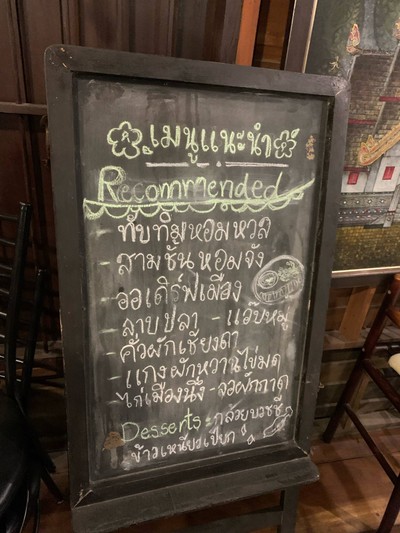 เมนูแนะนำ
Recommended
- ทับทิมหอมหวล
- สามชั้นหอมจัง
- ออเดิร์ฟเมือง
- ลาบปลา - แอ๊บหมู
- คั่วผักเชียงดา
- แกงผักหวานไข่มด
- ไก่เมืองนึ่ง - จอผักกาด
Desserts - กล้วยบวชชี
ข้าวเหนียวเปียก